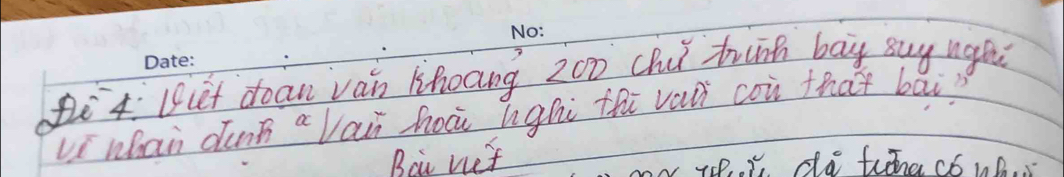 No:
Date:
Đề 4: Viết đoạn văn khoảng 200 chữ trình bày suy nghĩ
về nhận định "Văn hoài nghi thì văn còn thất bại"
Bài viết
đã từng có